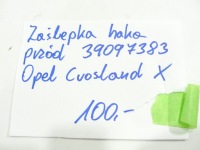 Zaślepka haka
przód 39097383
Opel Crosland X
100,-